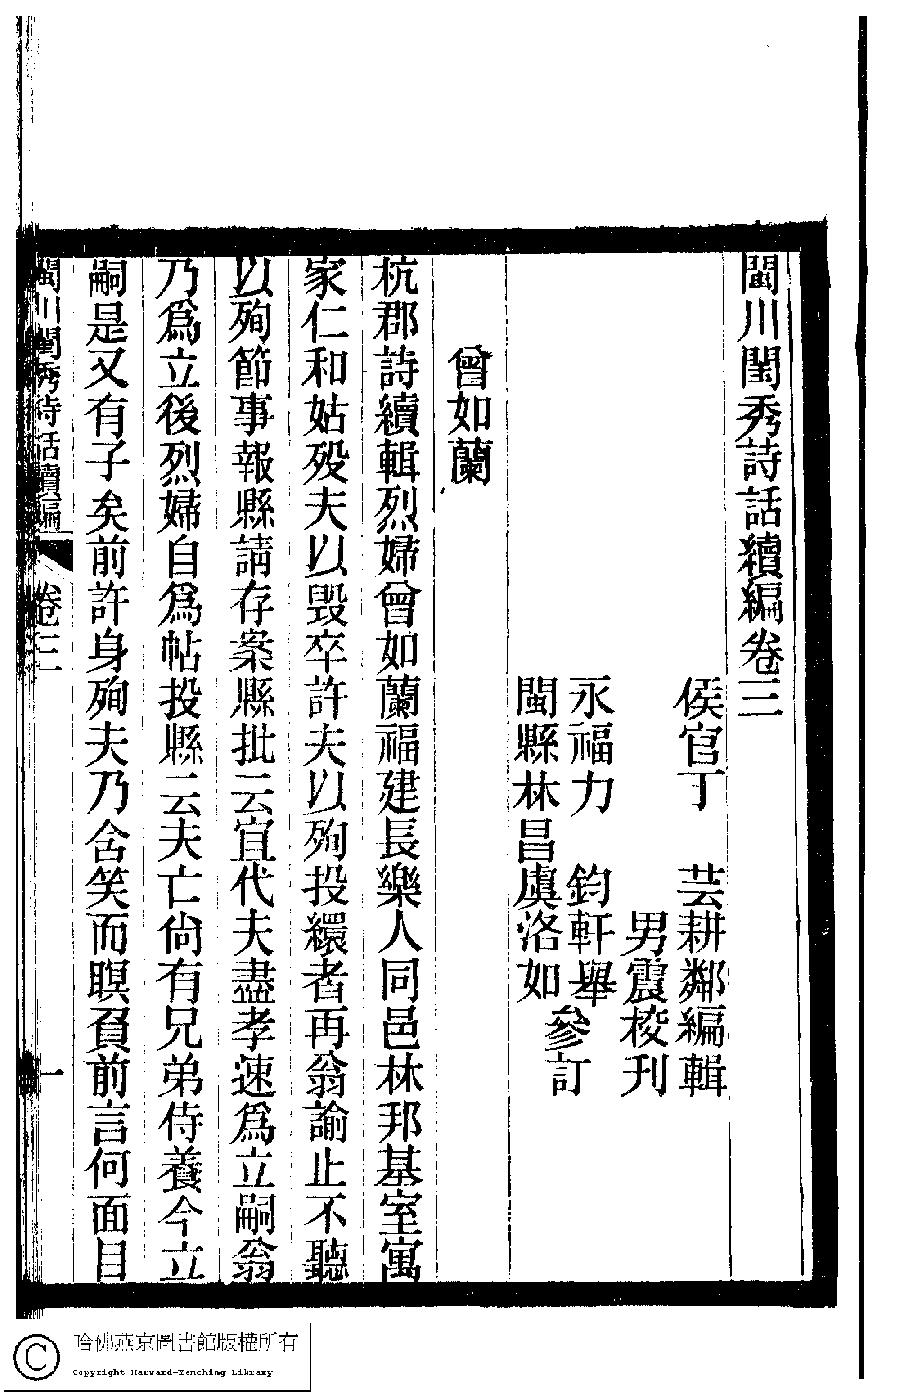 閩川閨秀詩話續編卷三
侯官丁　芸耕鄰編輯
男震校刊
永福力　鈞軒舉
閩縣林昌虞洛如
參訂
曾如蘭
杭郡詩續輯烈婦曾如蘭福建長樂人同邑林邦基室寓
家仁和姑歿夫以毀卒許夫以殉投繯者再翁諭止不聽
以殉節事報縣請存案縣批云宜代夫盡孝速爲立嗣翁
乃爲立後烈婦自爲帖投縣云夫亡尙有兄弟侍養今立
嗣是又有子矣前許身殉夫乃含笑而瞑負前言何面目
閩川閨秀詩話續編　卷三　一
哈佛燕京圖書館版權所有
Copyright Harvard-Yenching Library